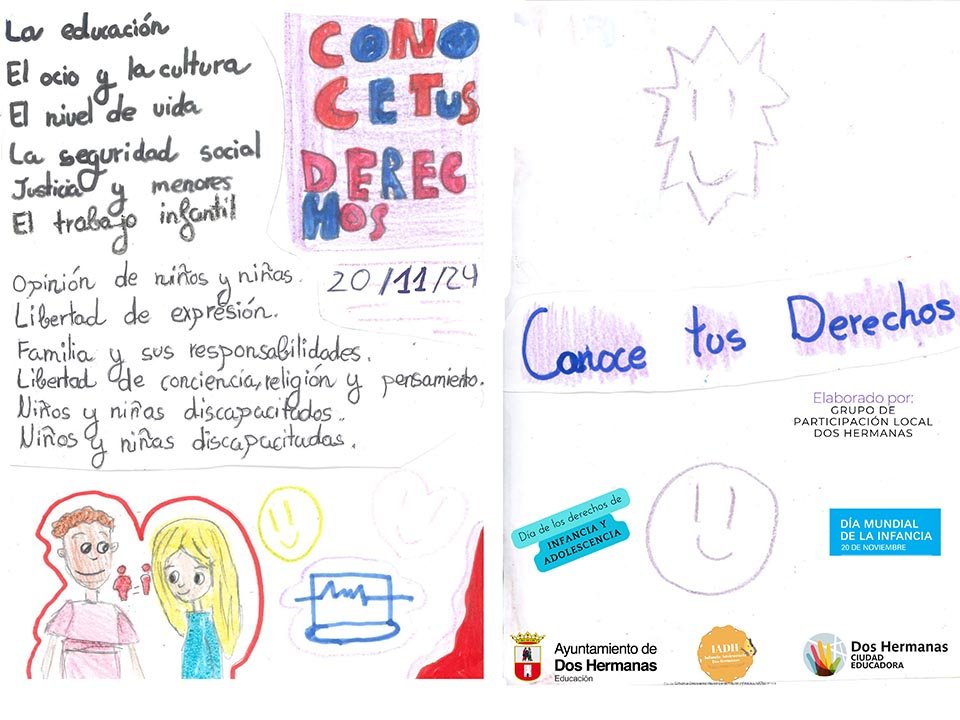 La educación
El ocio y la cultura
El nivel de vida
La seguridad social
Justicia y menores
El trabajo infantil
CONO
CE TUS
DEREC
HOS
20/11/24
Opinión de niños y niñas.
Libertad de expresión.
Familia y sus responsabilidades.
Libertad de conciencia, religión y pensamiento.
Niños y niñas discapacitados.
Niños y niñas discapacitadas.
Conoce tus Derechos
Elaborado por:
GRUPO DE
PARTICIPACIÓN LOCAL
DOS HERMANAS
Día de los derechos de
INFANCIA Y
ADOLESCENCIA
DÍA MUNDIAL
DE LA INFANCIA
20 DE NOVIEMBRE
Ayuntamiento de
Dos Hermanas
Educación
IADH
Infancia Adolescencia
Dos Hermanas
Dos Hermanas
CIUDAD
EDUCADORA